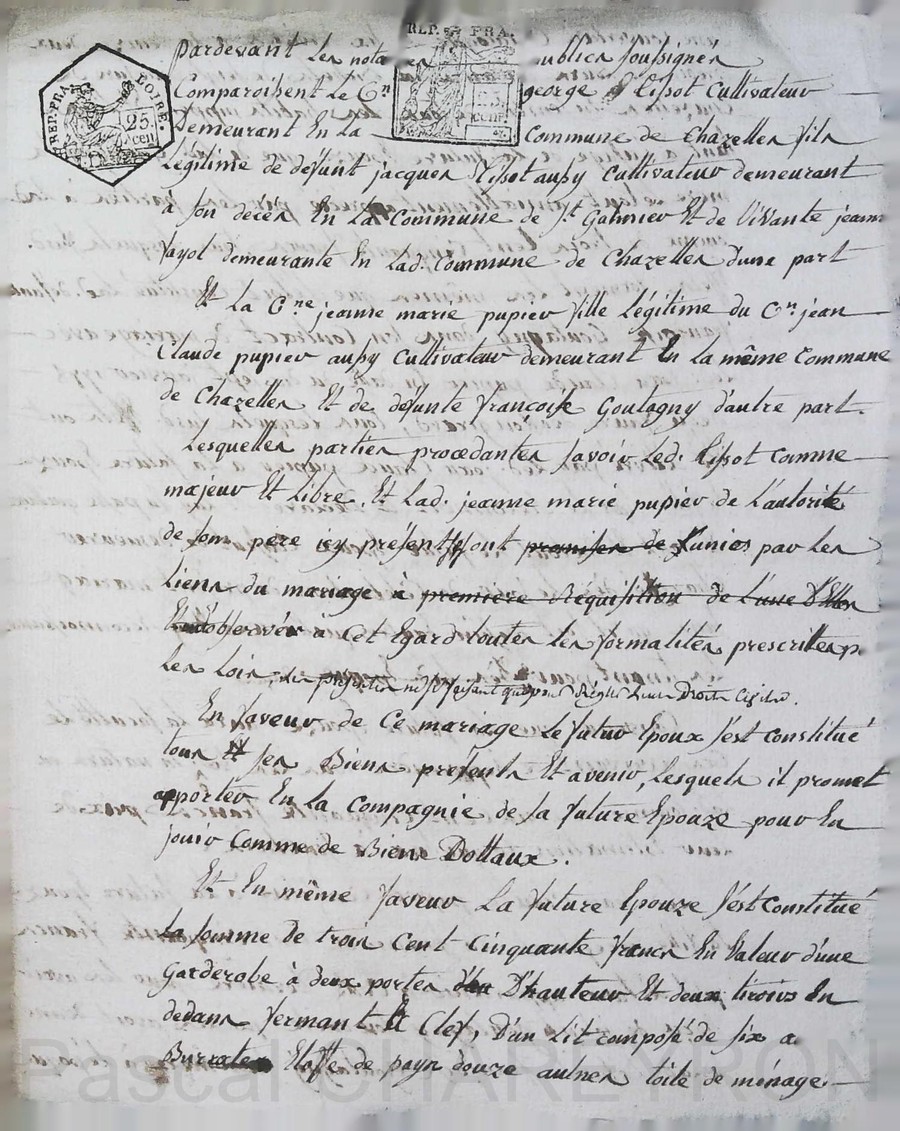 REP. FRA.
REP. FRA. LOIRE.
25. cen
25 CENT
pardevant les nota publics soussignés
Comparoissent le C.en george Rissot Cultivateur
Demeurant En la Commune de Chazelles fils
légitime de défunt jacques Rissot aussy Cultivateur demeurant
à son decès En la Commune de St Galmier Et de Vivante jeanne
fayol demeurante En lad. Commune de Chazelles dune part
Et la C.ne jeanne marie pupier fille légitime du C.en jean
Claude pupier aussy Cultivateur demeurant En la même Commune
de Chazelles Et de défunte françoise Goutagny d'autre part.
Lesquelles parties procedantes savoir led. Rissot comme
majeur Et Libre, Et Lad. jeanne marie pupier de L'autorité
de son père icy présent, sont promises de s'unir par les
liens du mariage à première Réquisition de L'une D'Elles
observés a Cet Egard toutes les formalités prescrittes p.
les loix, les présentes ne faisant que pour Régler Leurs Droits Civils.
En faveur de Ce mariage Le futur Epoux s'est Constitué
tous Et ses Biens présents Et avenir, Lesquels il promet
apporter En la Compagnie de sa future Epouze pour En
jouir Comme de Biens Dottaux.
Et En même faveur La future Epouze s'est Constitué
La somme de trois Cent Cinquante francs En Valeur d'une
Garderobe à deux portes D'hauteur Et deux tiroirs En
dedans fermant à Clef, D'un Lit composé de six a
Etoffe de payn douze aulnes toile de ménage.
Pascal CHARETRON